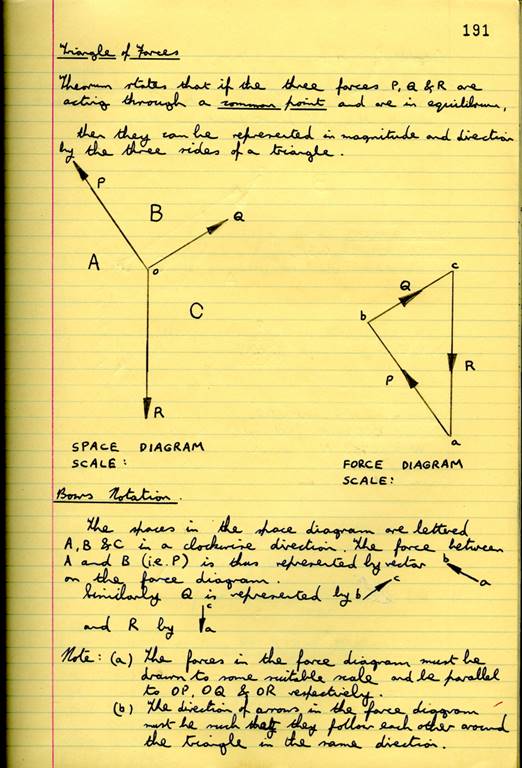 191
Triangle of Forces
Theorum states that if the three forces P, Q & R are
acting through a common point and are in equilibrium,
then they can be represented in magnitude and direction
by the three sides of a triangle.
P
B
Q
A
o
C
R
c
Q
b
P
R
a
SPACE DIAGRAM
SCALE:
FORCE DIAGRAM
SCALE:
Bows Notation.
The spaces in the space diagram are lettered
A, B & C in a clockwise direction. The force between
A and B (i.e. P) is thus represented by vector b a
on the force diagram.
Similarly Q is represented by b c
and R by c a
Note: (a) The forces in the force diagram must be
drawn to some suitable scale and be parallel
to OP, OQ & OR respectively.
(b) The direction of arrows in the force diagram
must be such that they follow each other around
the triangle in the same direction.